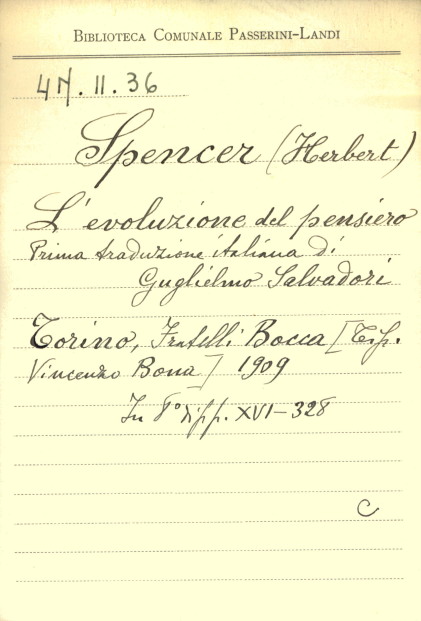 BIBLIOTECA COMUNALE PASSERINI-LANDI
4N. II. 36
Spencer (Herbert)
L'evoluzione del pensiero
Prima traduzione italiana di
Guglielmo Salvadori
Torino, Fratelli Bocca [Tip.
Vincenzo Bona] 1909
In 8° di pp. XVI-328
C